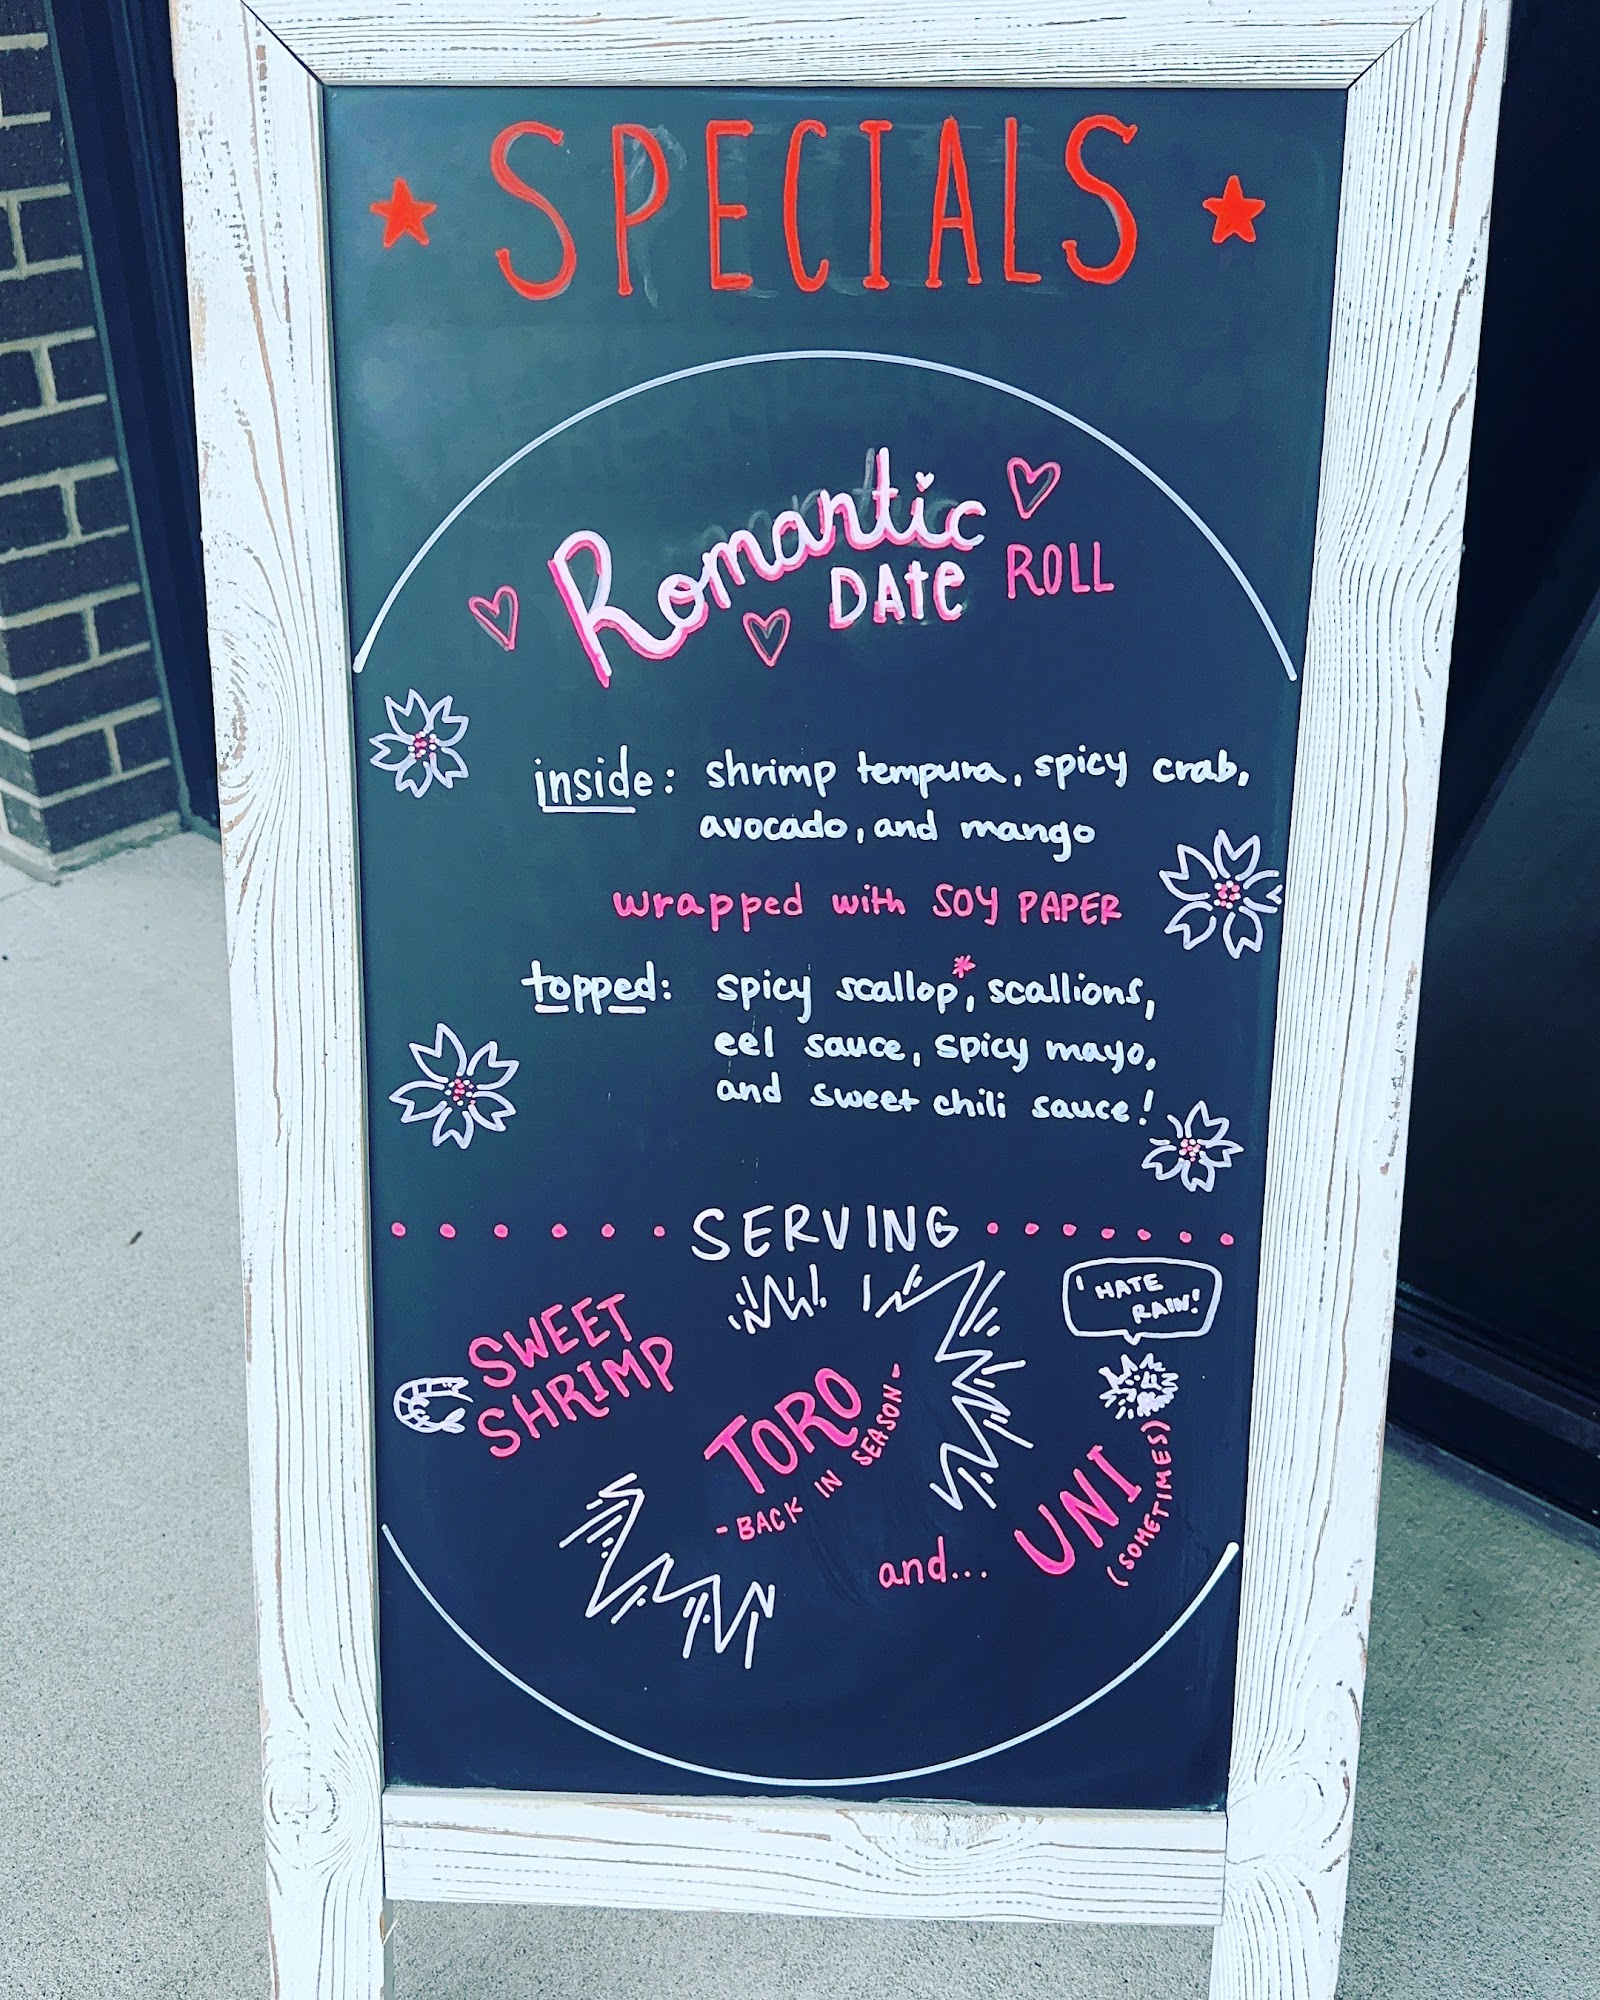 ★ SPECIALS ★
Romantic
DATE ROLL
inside: shrimp tempura, spicy crab,
avocado, and mango
wrapped with SOY PAPER
topped: spicy scallop*, scallions,
eel sauce, spicy mayo,
and sweet chili sauce!
SERVING
SWEET
SHRIMP
TORO
- BACK IN SEASON -
and...
I HATE
RAIN!
UNI
(SOMETIMES)